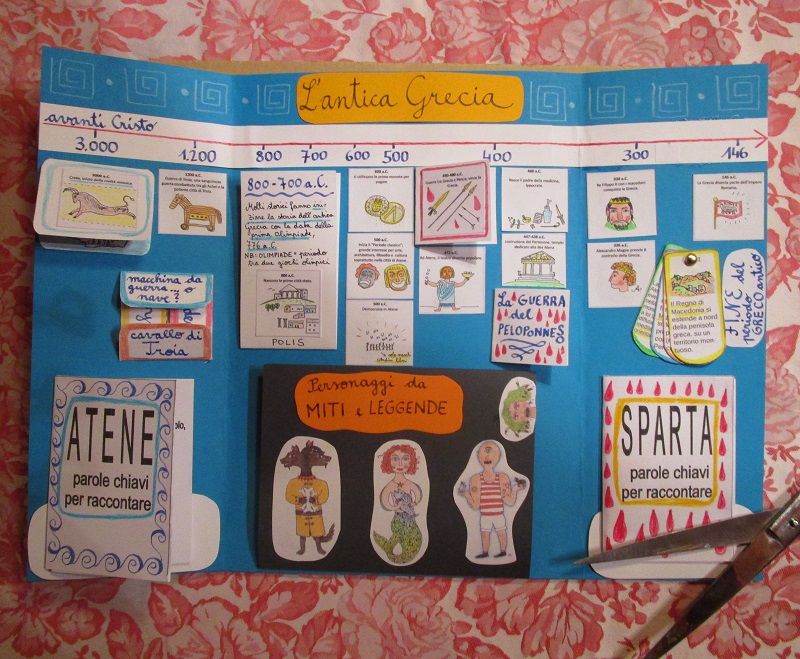 L'antica Grecia
avanti Cristo
3.000 1.200 800 700 600 500 400 300 146
3000 a.C.
Creta, inizio della civiltà minoica
1200 a.C.
Guerra di Troia, una sanguinosa
guerra combattuta tra gli Achei e la
potente città di Troia.
macchina da
guerra... o
nave?
cavallo di
Troia
800-700 a.C.
Molti storici fanno ini-
ziare la storia dell'antica
Grecia con la data della
prima Olimpiade,
776 a.C.
NB: OLIMPIADE = periodo
tra due giochi olimpici
800 a.C.
Nascono le prime città stato.
POLIS
600 a.C.
Si utilizzano le prime monete per
pagare
500 a.C.
Inizia il "Periodo classico":
grande interesse per arte,
architettura, filosofia e cultura
soprattutto nella città di Atene
500 a.C.
Democrazia in Atene
490-480 a.C.
Guerra tra Grecia e Persia; vince la
Grecia.
460 a.C.
Nasce il padre della medicina,
Ippocrate.
447-438 a.C.
costruzione del Partenone, tempio
dedicato alla dea Atena
LA GUERRA
del
PELOPONNESO
Re Filippo II con i macedoni
conquista la Grecia
Alessandro Magno prende il
controllo della Grecia.
146 a.C.
La Grecia diventa parte dell'Impero
Romano.
Il Regno di
Macedonia si
estende a nord
della penisola
greca, su un
territorio mon-
tuoso.
FINE del
periodo
GRECO antico
ATENE
parole chiavi
per raccontare
Personaggi da
MITI e LEGGENDE
SPARTA
parole chiavi
per raccontare